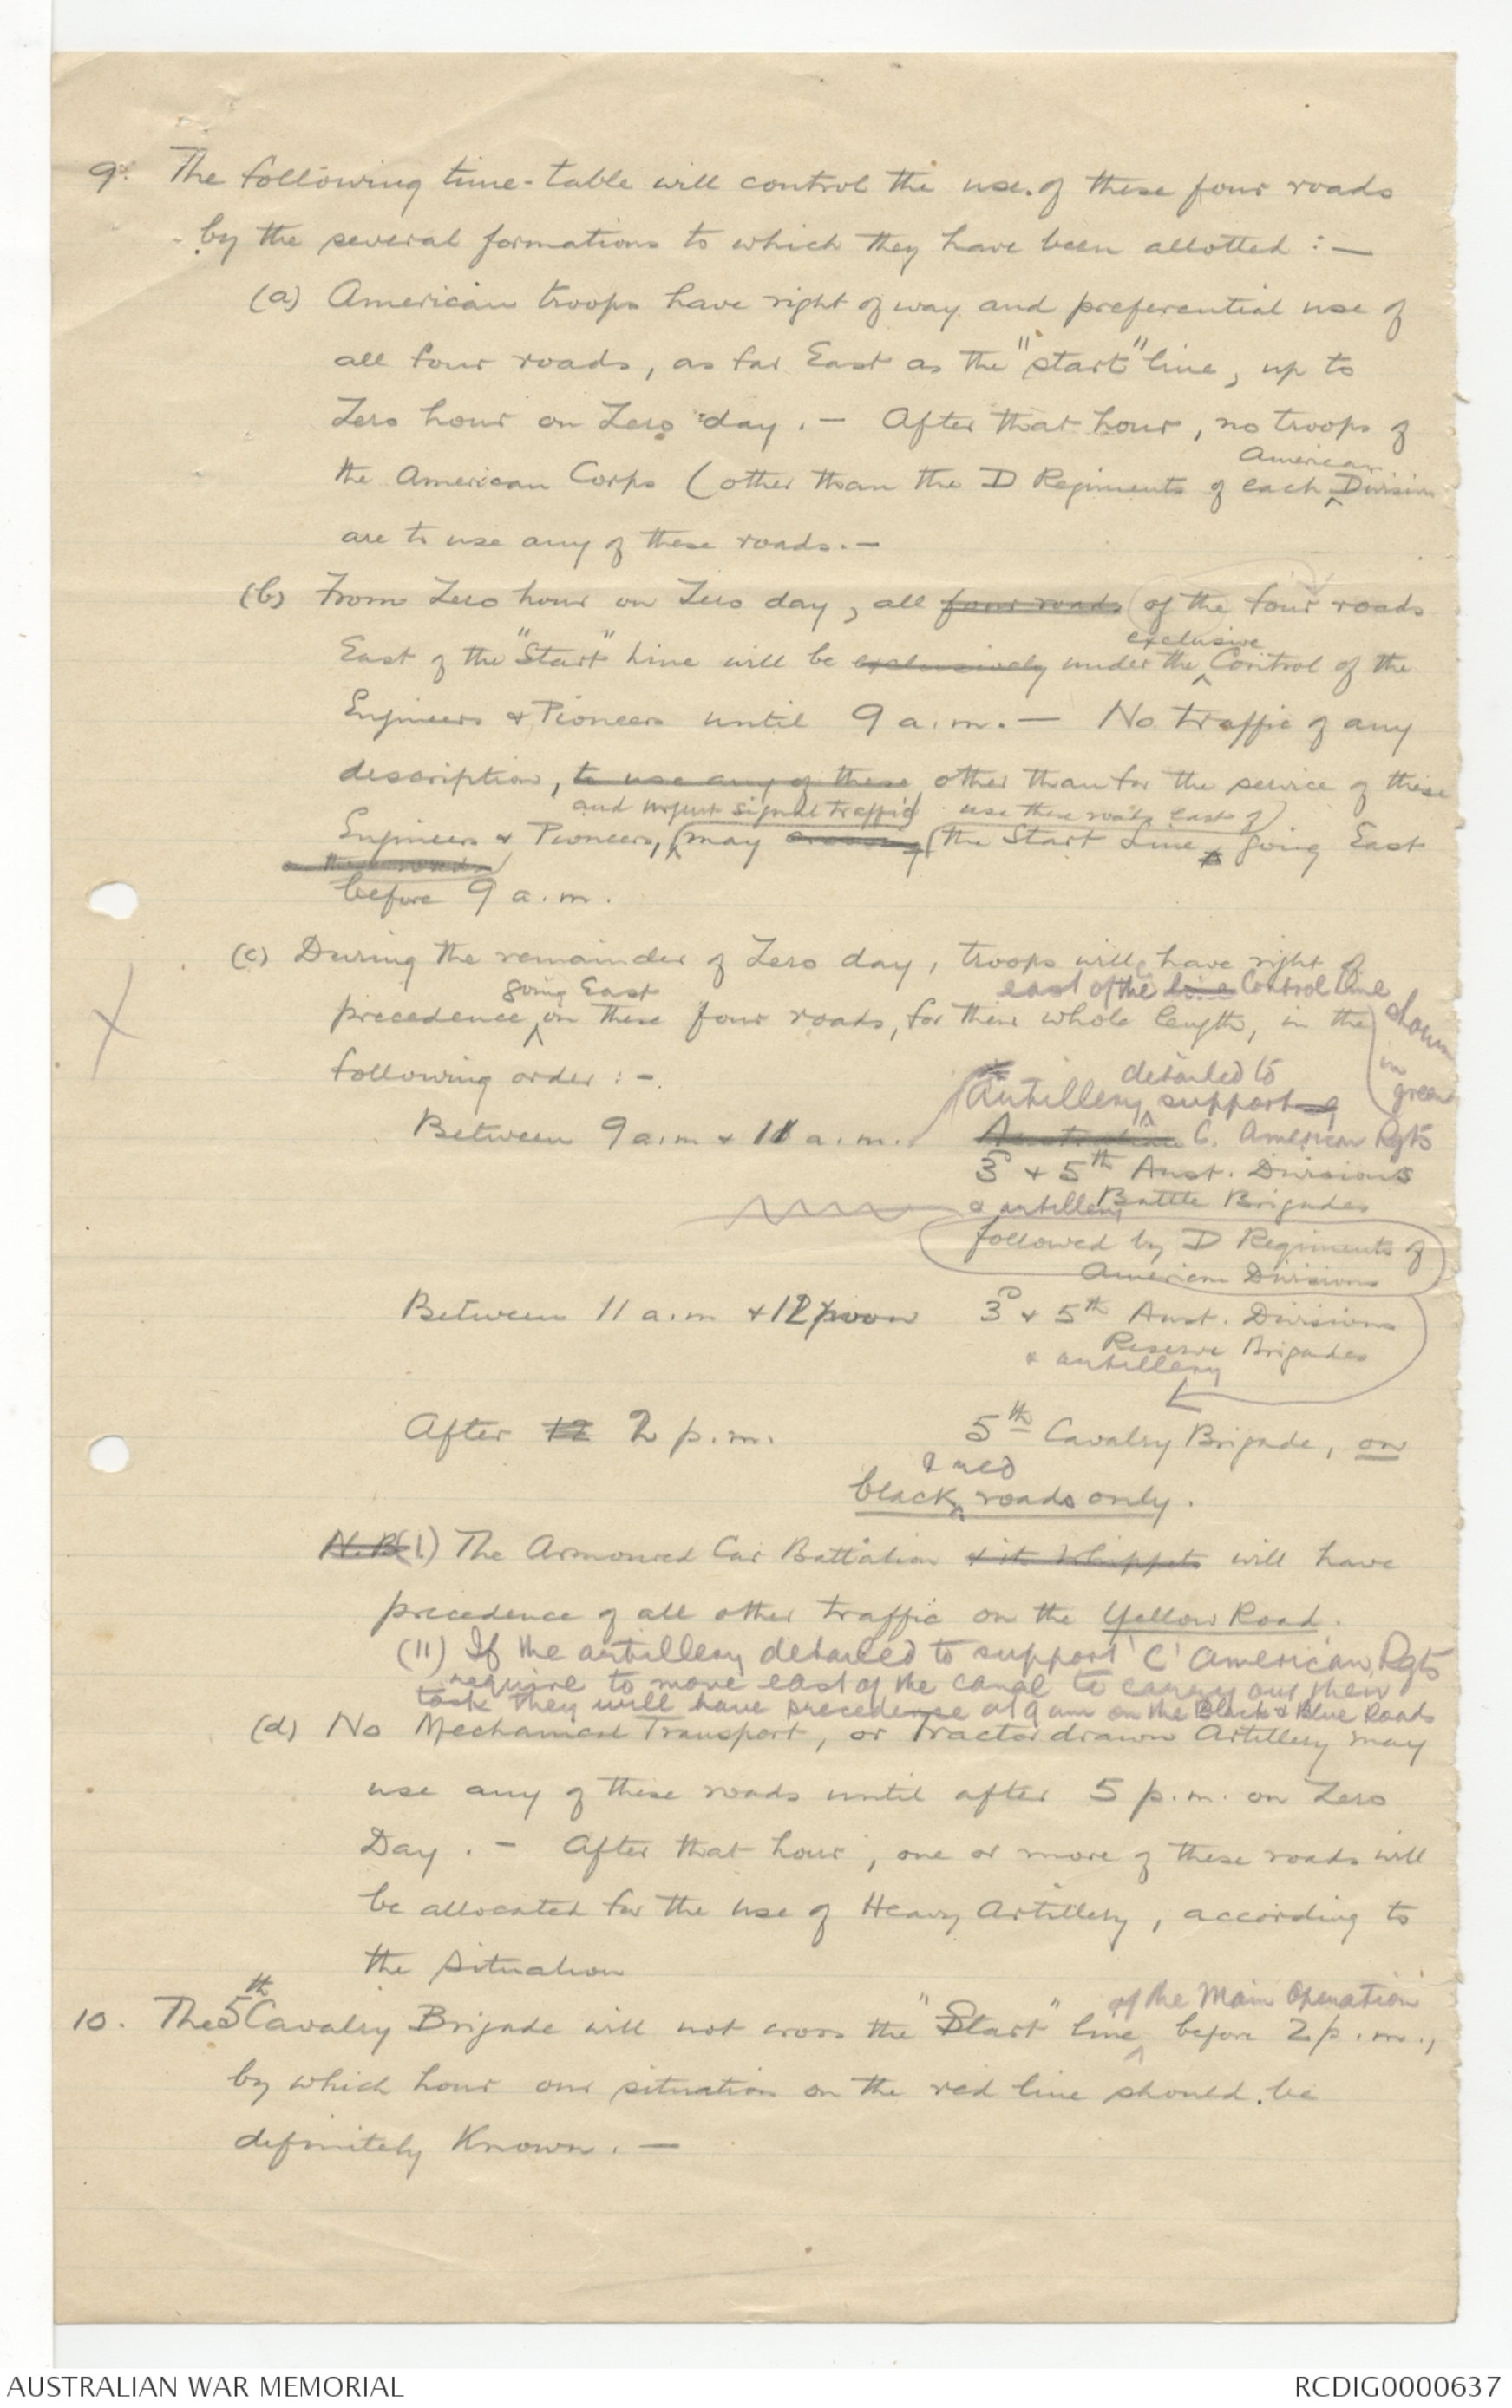 9. The following time-table will control the use of these four roads
by the several formations to which they have been allotted :—
(a) American troops have right of way and preferential use of
all four roads, as far East as the "start" line, up to
Zero hour on Zero day. — After that hour, no troops of
American
the American Corps (other than the D Regiments of each Division
are to use any of these roads. —
(b) From Zero hour on Zero day, all four roads of the four roads
exclusive
East of the "Start" Line will be exclusively under the Control of the
Engineers & Pioneers until 9 a.m. — No traffic of any
description, to use any of these other than for the service of these
and urgent signal traffic use these roads east of
Engineers & Pioneers, may the Start Line, going East
on these roads
before 9 a.m.
(c) During the remainder of Zero day, troops will have right of
going East east of the line Control Line
precedence on these four roads, for their whole length, in the shown
following order :- in
green
detailed to
Artillery support
Between 9 a.m & 11 a.m. Australian C. American Rgts
3rd & 5th Aust. Divisions
& artillery Battle Brigades
followed by D Regiments of
American Divisions
Between 11 a.m & 12 noon 3rd & 5th Aust. Divisions
Reserve Brigades
& artillery
After 12 2 p.m. 5th Cavalry Brigade, on
& red
black roads only.
N.B. (1) The Armoured Car Battalion & its Whippets will have
precedence of all other traffic on the Yellow Road.
(11) If the artillery detailed to support 'C' American Rgts
require to move east of the canal to carry out their
task they will have precedence at 9 am on the Black & Blue Roads
(d) No Mechanical Transport, or Tractor drawn Artillery may
use any of these roads until after 5 p.m. on Zero
Day. — After that hour, one or more of these roads will
be allocated for the use of Heavy Artillery, according to
the situation
of the Main Operation
10. The 5th Cavalry Brigade will not cross the "Start" line before 2 p.m.,
by which hour our situation on the red line should be
definitely known. —
AUSTRALIAN WAR MEMORIAL RCDIG0000637